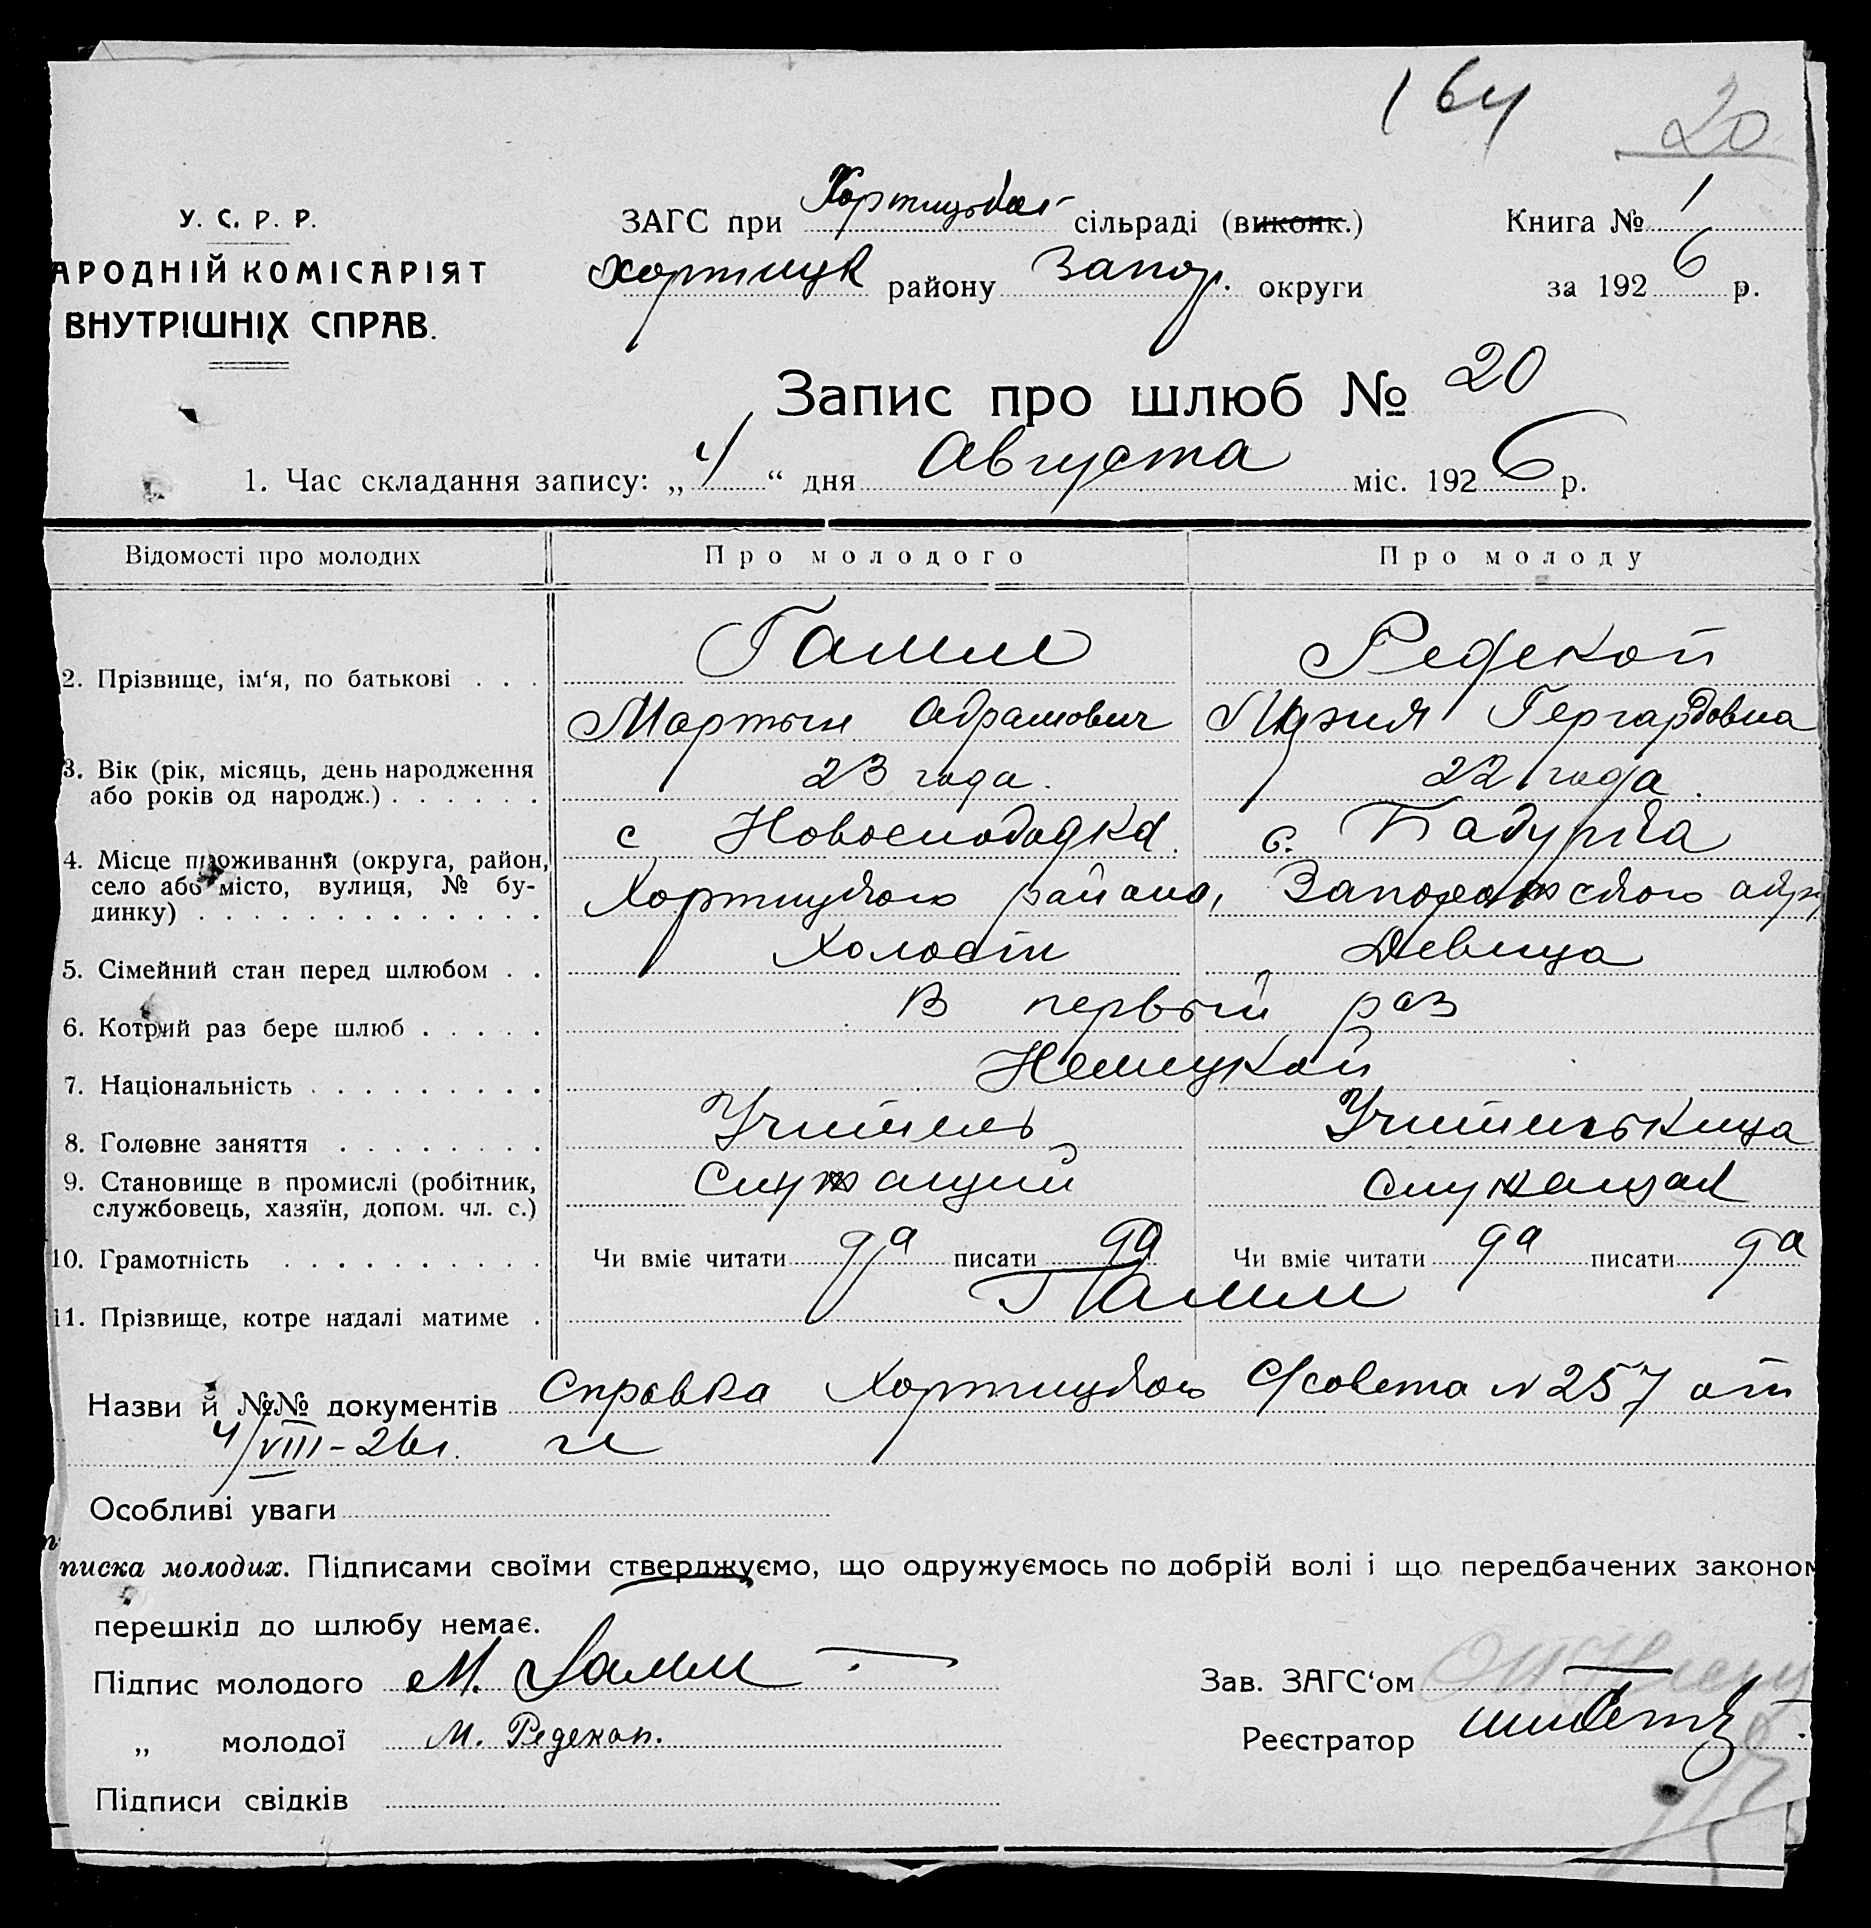 164
20
У. С. Р. Р.
АРОДНІЙ КОМІСАРІЯТ
ВНУТРІШНІХ СПРАВ.
ЗАГС при Хортицькой сільраді (виконк.)
Хортицк району Запор. округи
Книга № 1
за 1926 р.
Запис про шлюб № 20
1. Час складання запису: „4“ дня Августа міс. 1926 р.
Відомості про молодих Про молодого Про молоду
2. Прізвище, ім'я, по батькові . . . Гамм Редекоп
Мартын Абрамович Мария Гергардовна
3. Вік (рік, місяць, день народження 23 года. 22 года.
або років од народж.) . . . . . .
4. Місце проживання (округа, район, с Новослободка с. Бабурка
село або місто, вулиця, № бу-
динку) . . . . . . . . . . . . . Хортицкого района, Запорожского окр
5. Сімейний стан перед шлюбом . . Холост Девица
6. Котрий раз бере шлюб . . . . . В первый раз
7. Національність . . . . . . . . . Немецкой
8. Головне заняття . . . . . . . . Учитель Учительница
9. Становище в промислі (робітник, Служащий Служащая
службовець, хазяїн, допом. чл. с.)
10. Грамотність . . . . . . . . . . Чи вміє читати да писати да Чи вміє читати да писати да
11. Прізвище, котре надалі матиме . Гамм
Назви й №№ документів Справка Хортицкого С/совета № 257 от
4/VIII-26г.
Особливі уваги
писка молодих. Підписами своїми стверджуємо, що одружуємось по добрій волі і що передбачених законом
перешкід до шлюбу немає.
Підпис молодого М. Гамм
Зав. ЗАГС'ом
„ молодої М. Редекоп.
Реєстратор
Підписи свідків